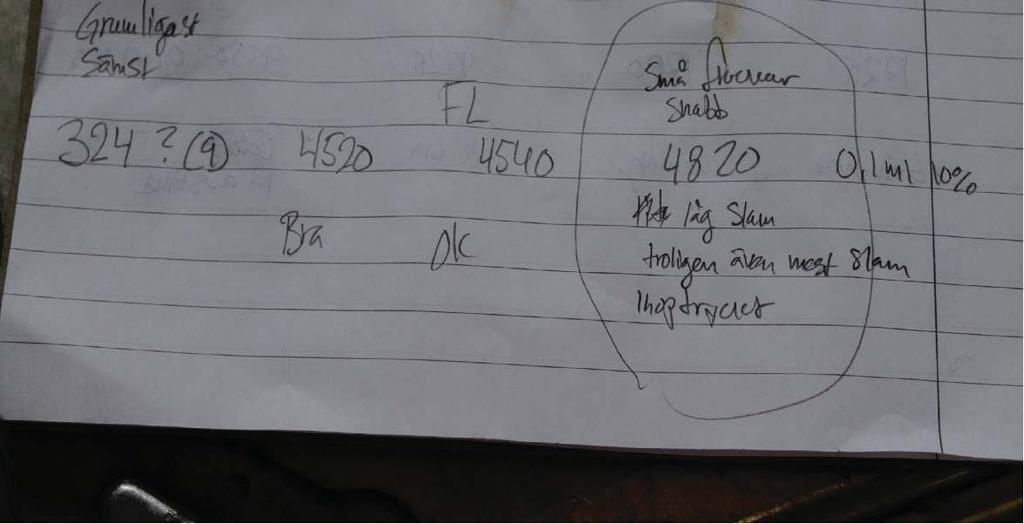 Grumligast
Sämst
FL
Små flockar
Snabb
324 ? (9) 4520 4540 4820 0,1 ml 10%
Bra OK
låg Slam
troligen även mest Slam
Ihoptryckt